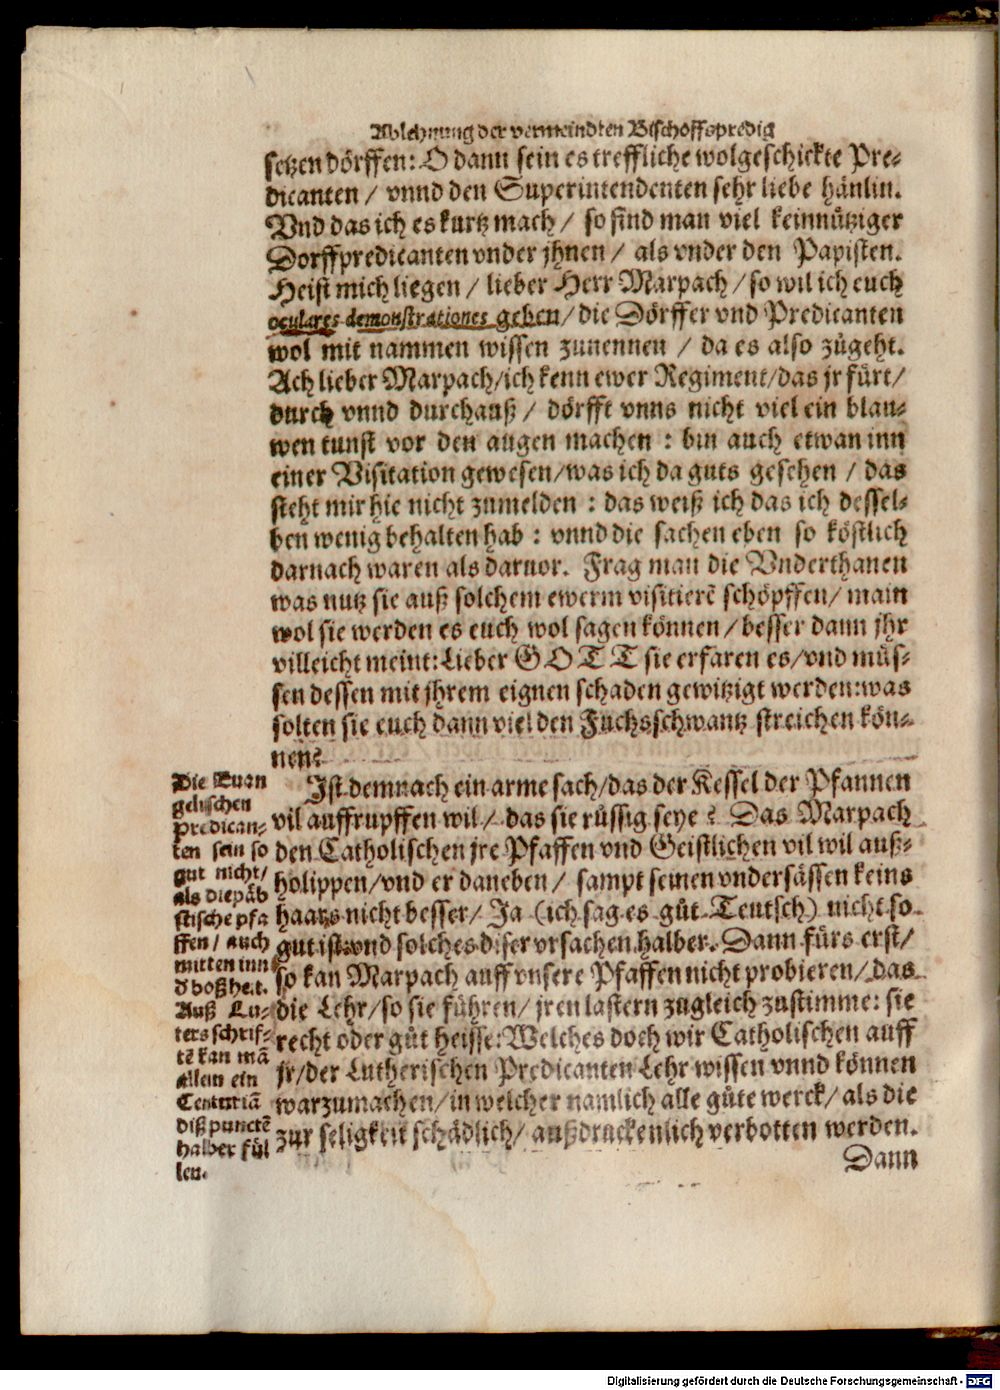 Ablehnung der vermeindten Bischoffspredig
setzen dörffen: O dann sein es treffliche wolgeschickte Pre-
dicanten / vnnd den Superintendenten sehr liebe hänlin.
Vnd das ich es kurtz mach / so sind man viel keinnütziger
Dorffpredicanten vnder jhnen / als vnder den Papisten.
Heist mich liegen / lieber Herr Marpach / so wil ich euch
oculares demonstrationes geben / die Dörffer vnd Predicanten
wol mit nammen wissen zunennen / da es also zůgeht.
Ach lieber Marpach/ich kenn ewer Regiment/das jr fürt/
durch vnnd durchauß / dörfft vnns nicht viel ein blau-
wen tunst vor den augen machen : bin auch etwan inn
einer Visitation gewesen/was ich da guts gesehen / das
steht mir hie nicht zumelden : das weiß ich das ich dessel-
ben wenig behalten hab : vnnd die sachen eben so köstlich
darnach waren als daruor. Frag man die Vnderthanen
was nutz sie auß solchem ewerm visitierē schöpffen/ main
wol sie werden es euch wol sagen können / besser dann jhr
villeicht meint: Lieber GOTT sie erfaren es/vnd müs-
sen dessen mit jhrem eignen schaden gewitzigt werden: was
solten sie euch dann viel den Fuchsschwantz streichen kön-
nen?
Ist demnach ein arme sach/das der Kessel der Pfannen
vil auffrupffen wil / das sie rüssig seye ? Das Marpach
den Catholischen jre Pfaffen vnd Geistlichen vil wil auß-
holippen/vnd er daneben / sampt seinen vndersässen keins
haars nicht besser / Ja (ich sag es gůt Teutsch) nicht so
gut ist vnd solches diser vrsachen halber. Dann fürs erst/
so kan Marpach auff vnsere Pfaffen nicht probieren / das
die Lehr/so sie führen/ jren lastern zugleich zustimme: sie
recht oder gůt heisse: Welches doch wir Catholischen auff
jr/der Lutherischen Predicanten Lehr wissen vnnd können
warzumachen/in welcher namlich alle gůte werck/ als die
zur seligkeit schädlich/ außdruckenlich verbotten werden.
Dann
Die Euan
gelischen
Predican-
ten sein so
gut nicht/
als die päb
stische pfa
ffen / auch
mitten inn
d boßheit.
Auß Lu-
ters schrif-
tē kan mā
allein ein
Centuriā
diß punctē
halber fül
len.
Digitalisierung gefördert durch die Deutsche Forschungsgemeinschaft - DFG